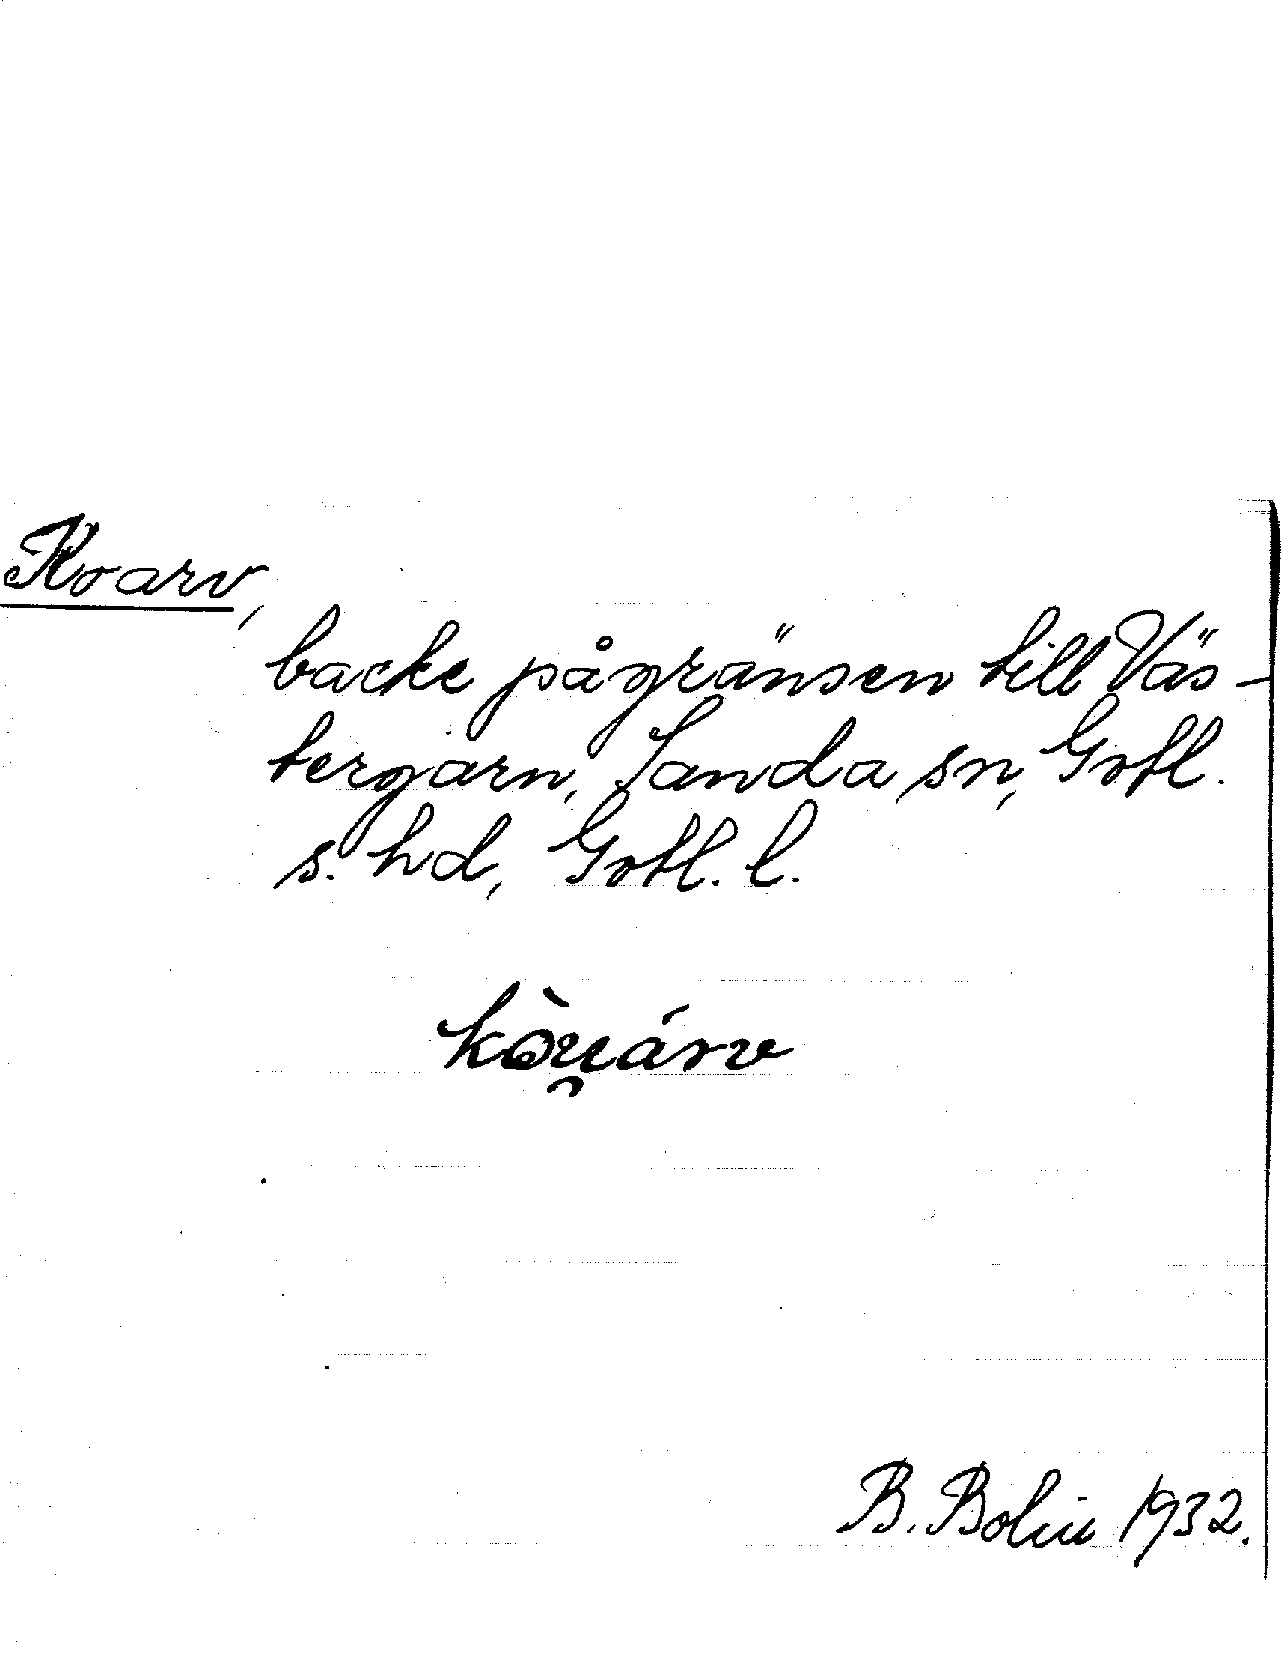 Koarv,
backe på gränsen till Väs-
tergarn, Sanda sn, Gotl.
s. hd, Gotl. l.
kòu̯árv
B. Bolin 1932.